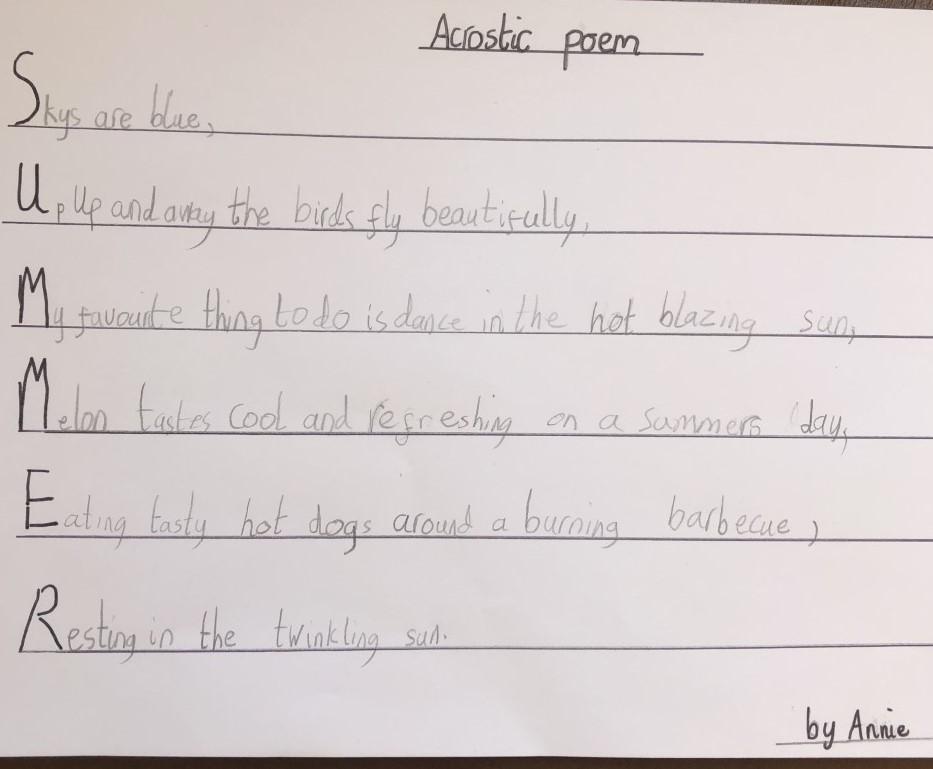 Acrostic poem
Skys are blue,
Up Up and away the birds fly beautifully,
My favourite thing to do is dance in the hot blazing sun,
Melon tastes cool and refreshing on a summers day,
Eating tasty hot dogs around a burning barbecue,
Resting in the twinkling sun.
by Annie